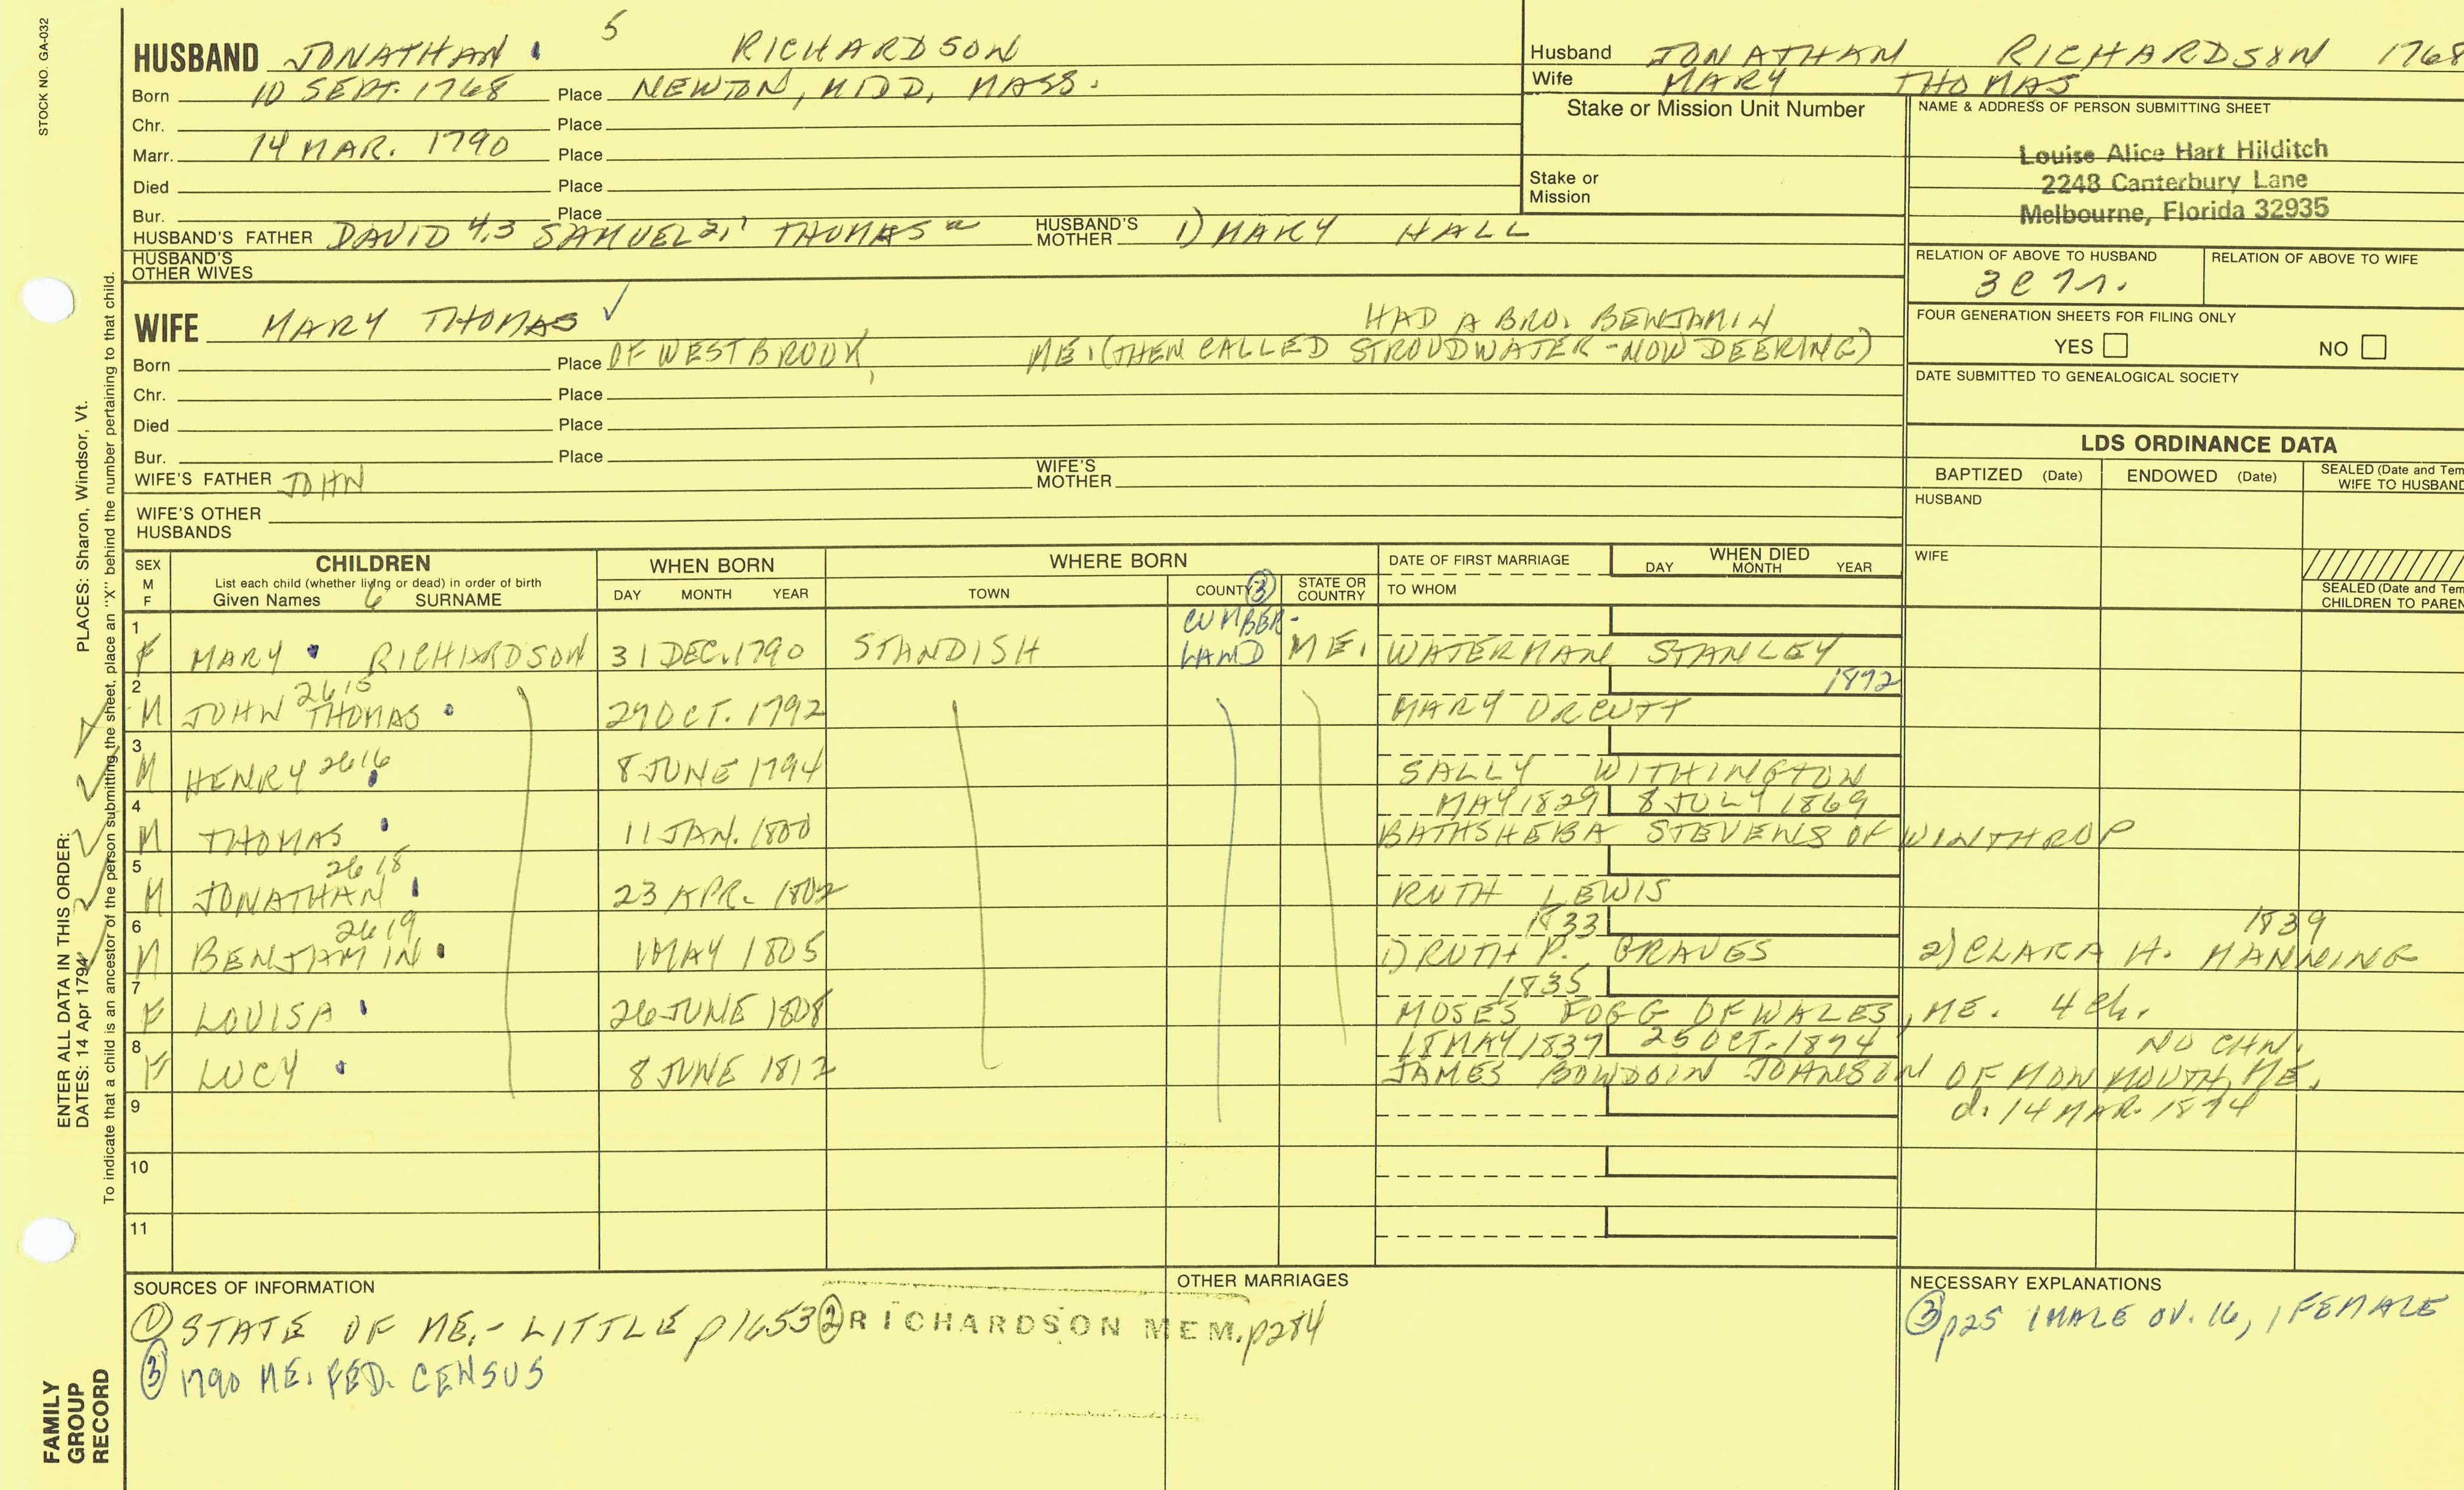 STOCK NO. GA-032
5
HUSBAND JONATHAN RICHARDSON
Born 10 SEPT. 1768 Place NEWTON, MIDD, MASS.
Chr. Place
Marr. 14 MAR. 1790 Place
Died Place
Bur. Place
HUSBAND'S FATHER DAVID 4,3 SAMUEL 2,1 THOMAS HUSBAND'S MOTHER 1) MARY HALL
HUSBAND'S OTHER WIVES
Husband JONATHAN RICHARDSON 1768
Wife MARY THOMAS
Stake or Mission Unit Number
Stake or Mission
NAME & ADDRESS OF PERSON SUBMITTING SHEET
Louise Alice Hart Hilditch
2248 Canterbury Lane
Melbourne, Florida 32935
RELATION OF ABOVE TO HUSBAND RELATION OF ABOVE TO WIFE
FOUR GENERATION SHEETS FOR FILING ONLY
YES NO
DATE SUBMITTED TO GENEALOGICAL SOCIETY
WIFE MARY THOMAS ✓ HAD A BRO. BENJAMIN
Born Place OF WESTBROOK, ME. (THEN CALLED STROUDWATER - NOW DEERING)
Chr. Place
Died Place
Bur. Place
WIFE'S FATHER JOHN WIFE'S MOTHER
WIFE'S OTHER HUSBANDS
LDS ORDINANCE DATA
BAPTIZED (Date) ENDOWED (Date) SEALED (Date and Tem
WIFE TO HUSBAND
HUSBAND
WIFE
SEALED (Date and Tem
CHILDREN TO PAREN
SEX M F CHILDREN
List each child (whether living or dead) in order of birth
Given Names 6 SURNAME
WHEN BORN
DAY MONTH YEAR
WHERE BORN
TOWN COUNTY ③ STATE OR COUNTRY
DATE OF FIRST MARRIAGE
TO WHOM
WHEN DIED
DAY MONTH YEAR
1 F MARY RICHARDSON 31 DEC. 1790 STANDISH CUMBER-LAND ME. WATERMAN STANLEY
2 M JOHN THOMAS 2615 29 OCT. 1792 1892 MARY ORCUTT
3 M HENRY 2616 8 JUNE 1794 SALLY WITHINGTON
4 M THOMAS 11 JAN. 1800 MAY 1829 8 JULY 1869 BATHSHEBA STEVENS OF WINTHROP
5 M JONATHAN 2618 23 APR. 1802 RUTH LEWIS
6 M BENJAMIN 2619 1 MAY 1805 1833 1) RUTH P. GRAVES 1839 2) CLARA H. MANNING
7 F LOUISA 26 JUNE 1808 1835 MOSES FOGG OF WALES, ME. 4 ch.
8 F LUCY 8 JUNE 1812 18 MAY 1837 25 OCT. 1874 NO CHN. JAMES BOWDOIN JOHNSON OF MONMOUTH, ME.
d. 14 MAR. 1874
9
10
11
SOURCES OF INFORMATION
① STATE OF ME. - LITTLE p 1653 ② RICHARDSON MEM. p284
③ 1790 ME. FED. CENSUS
OTHER MARRIAGES
NECESSARY EXPLANATIONS
③ p25 1 MALE OV. 16, 1 FEMALE
ENTER ALL DATA IN THIS ORDER:
DATES: 14 Apr 1794 PLACES: Sharon, Windsor, Vt.
To indicate that a child is an ancestor of the person submitting the sheet, place an "X" behind the number pertaining to that child.
FAMILY GROUP RECORD